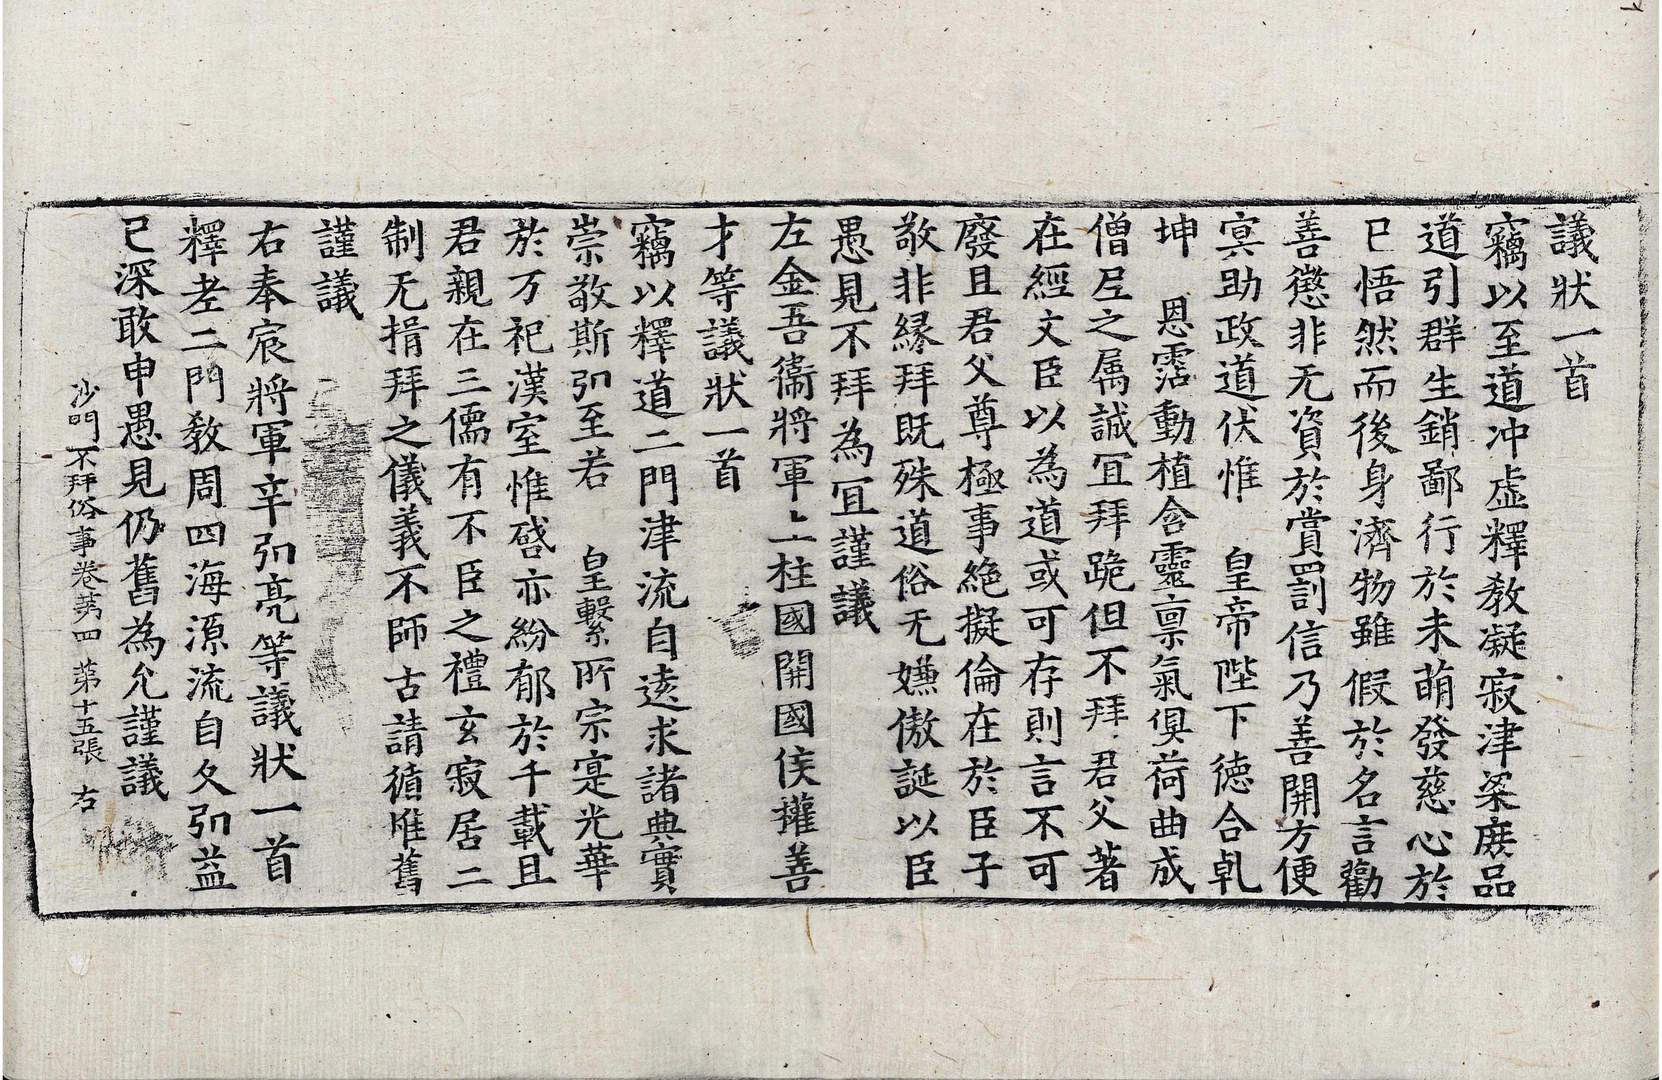 議狀一首
竊以至道冲虛釋教凝寂津梁庶品
道引群生銷鄙行於未萌發慈心於
已悟然而後身濟物雖假於名言勸
善懲非无資於賞罰信乃善開方便
冥助政道伏惟　皇帝陛下德合乹
坤　恩霑動植含靈禀氣俱荷曲成
僧尼之属誠冝拜跪但不拜君父著
在經文臣以為道或可存則言不可
廢且君父尊極事絶擬倫在於臣子
敬非緣拜既殊道俗无嫌傲誕以臣
愚見不拜為冝謹議
左金吾衞將軍上柱國開國侯權善
才等議狀一首
竊以釋道二門津流自遠求諸典實
崇敬斯弘至若　皇繫所宗寔光華
於万祀漢室惟啓亦紛郁於千載且
君親在三儒有不臣之禮玄寂居二
制无損拜之儀義不師古請循惟舊
謹議
右奉宸將軍辛弘亮等議狀一首
釋老二門教周四海源流自久弘益
已深敢申愚見仍舊為允謹議
沙門不拜俗事卷苐四　第十五張　右